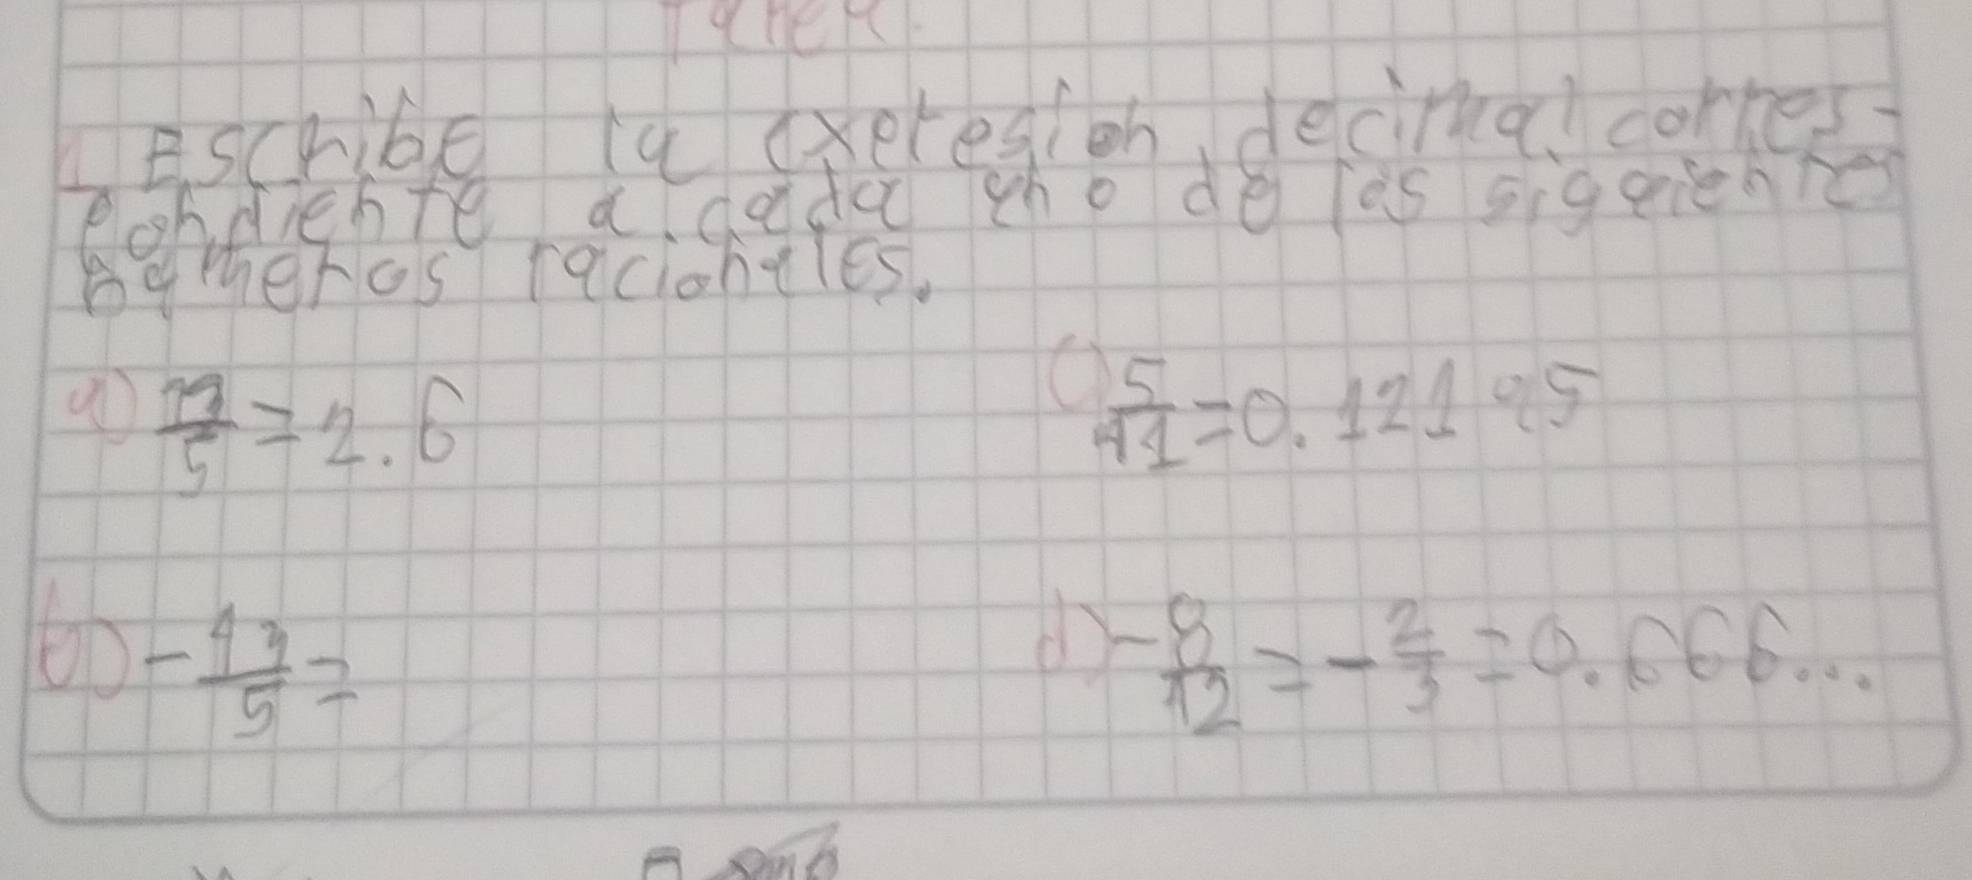 Tarea.
1 Escribe la expresion decimal corres-
pondiente a cada uno de los siguientes
numeros racionales.
a) 13/5 = 2.6
c) 5/41 = 0.12195
b) - 13/5 =
d) - 8/12 = - 2/3 = 0.666...